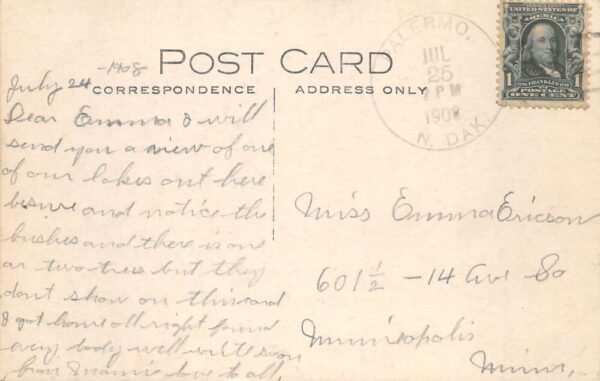 July 24 -1908
POST CARD
CORRESPONDENCE
ADDRESS ONLY
Dear Emma I will
send you a view of one
of our lakes out here
besure and notice the
bushes and there is one
or two tres but they
dont show on this card
I got home all right found
every body well write soon
from Mamie love to all,
PALERMO,
JUL
25
7 PM
1908
N. DAK.
UNITED STATES OF
AMERICA
1 1
FRANKLIN
POSTAGE
ONE CENT
Miss Emma Ericson
601 1/2 - 14 Ave So
Minneapolis
Minn,